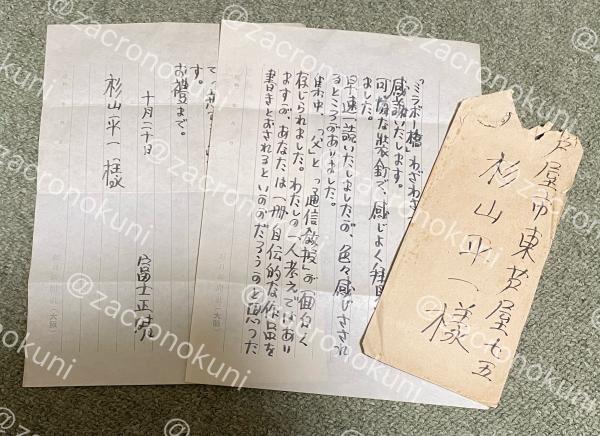 「ミラボー橋」わざわざ
感謝いたします。
可憐な装釘で、感じよく拝見
ました。
早速一読いたしましたが、色々感じさされ
るところがありました。
集中、「父」と「通信教授」が面白く
存じられました。わたしの一人考えではあり
ますが、あなたは一冊自伝的な作品を
書きとおされるといいのだろうのと思った
す。
お礼まで。
十月二十日
富士正晴
杉山平一様
芦屋市東芦屋七五
杉山平一様
@zacronokuni